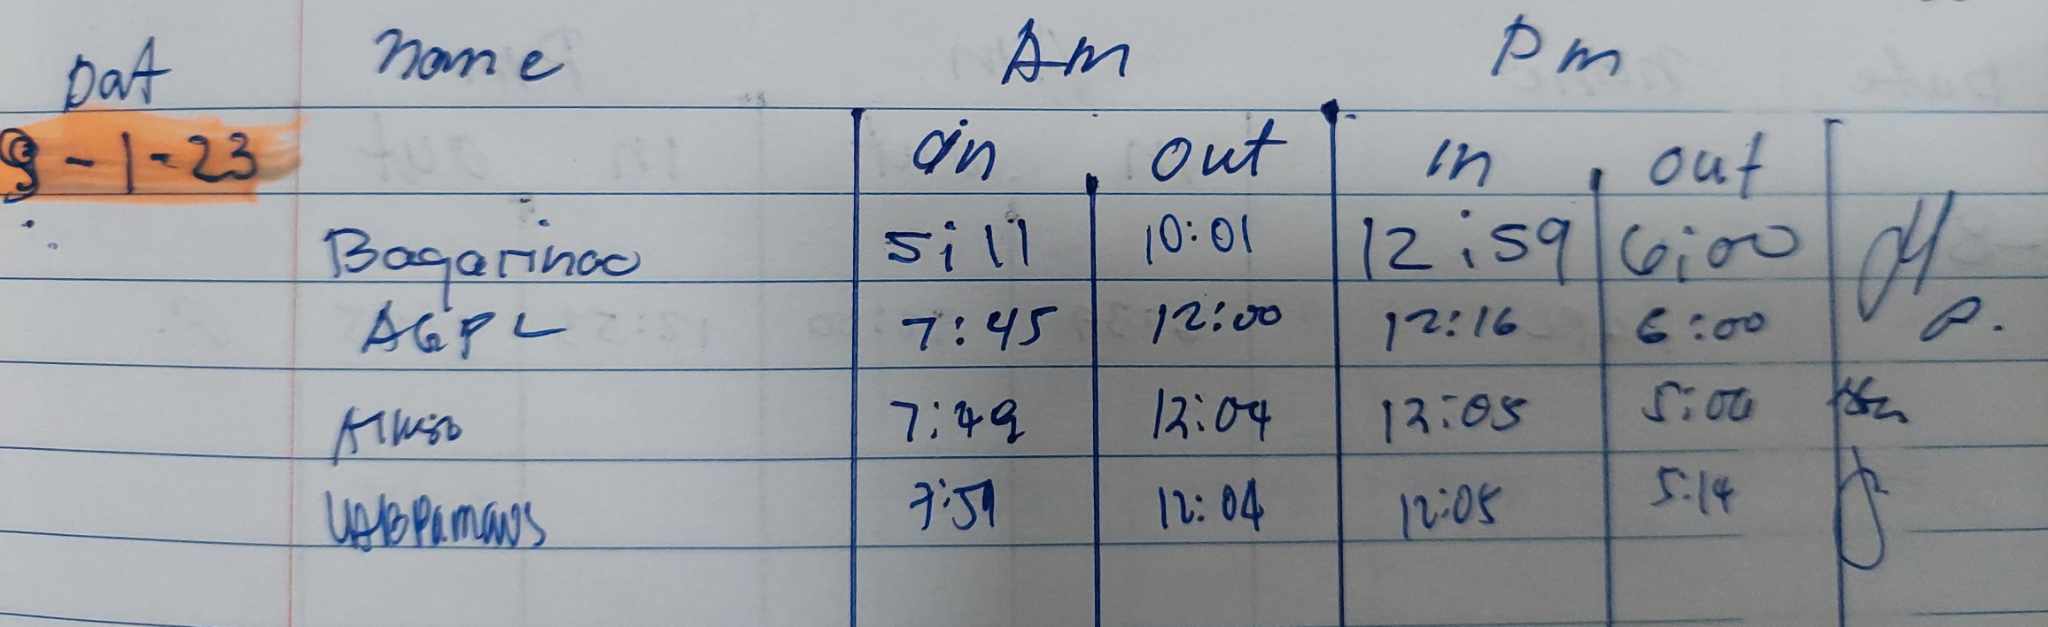 Dat name Am Pm
9-1-23 in out in out
Bagarinao 5:11 10:01 12:59 6:00
AGPL 7:45 12:00 12:16 6:00
7:49 12:04 12:05 5:00
7:59 12:04 12:05 5:14